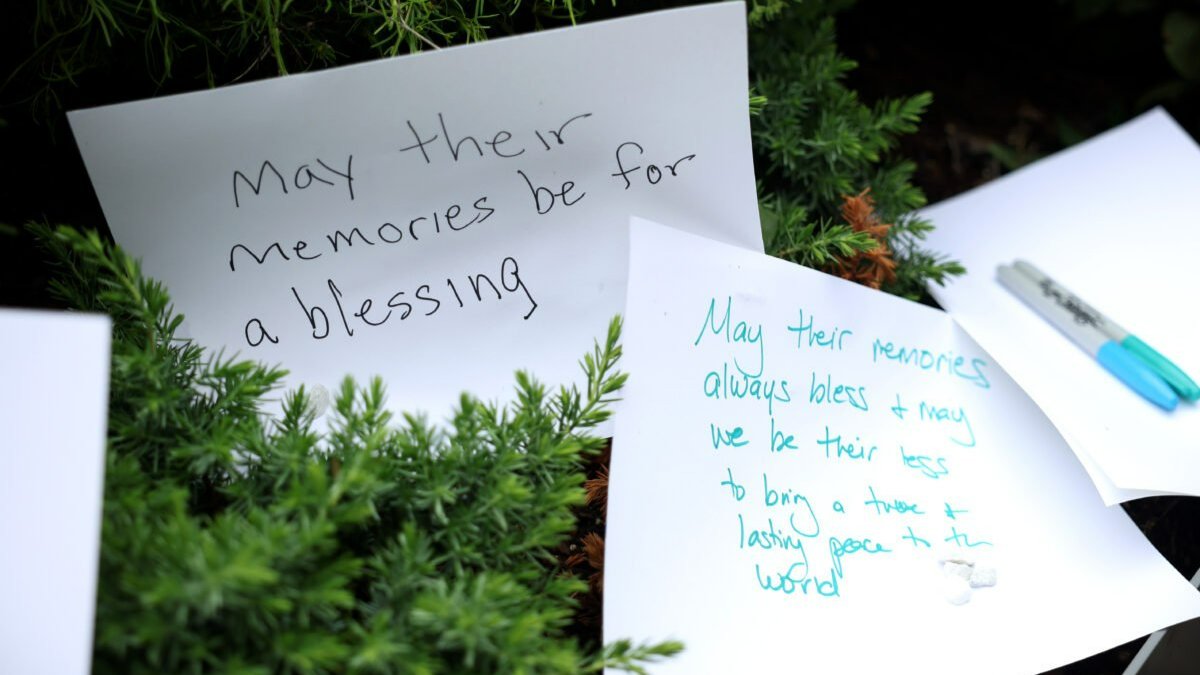 May their
memories be for
a blessing
May their memories
always bless & may
we be their legs
to bring a true &
lasting peace to the
world
Sharpie